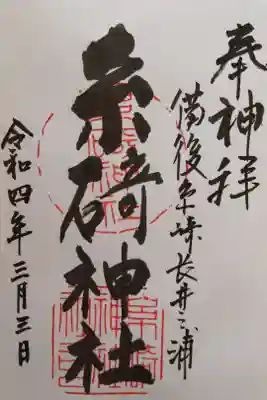 奉神拝
備後糸崎長井之浦
糸碕神社
令和四年三月三日